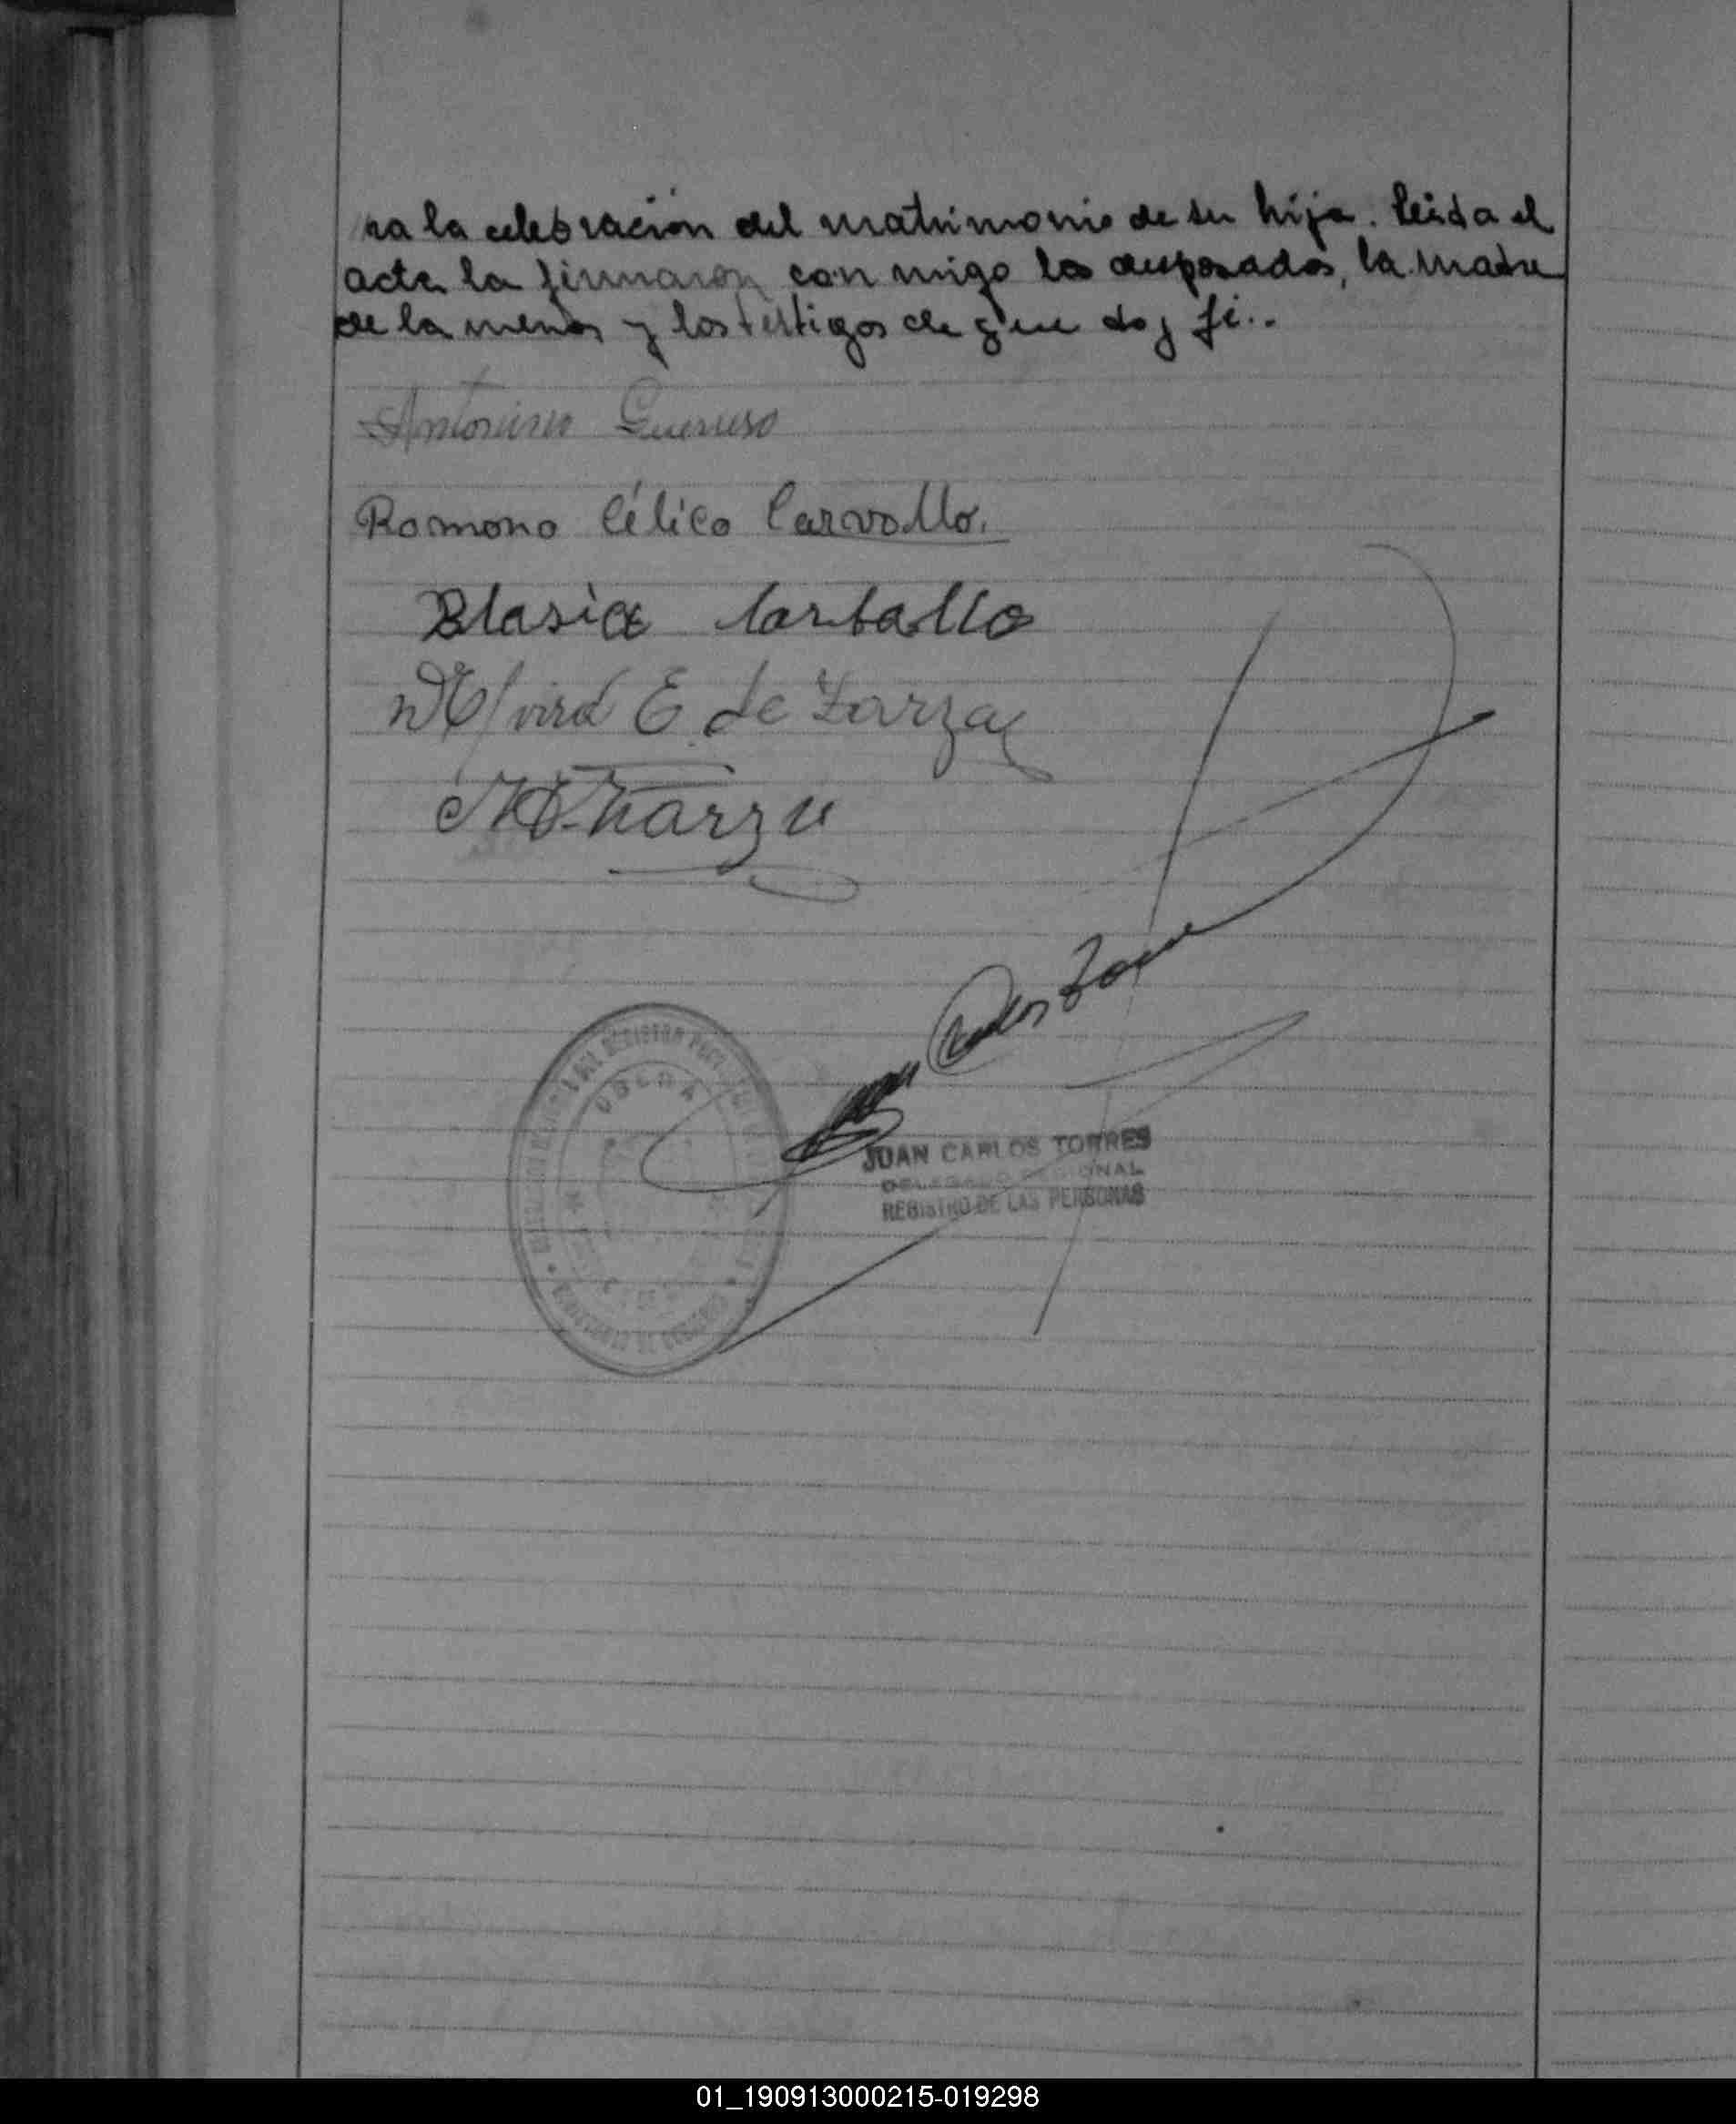 ra la celebración del matrimonio de su hija. Leida el
acta la firmaron con migo los desposados, la madre
de la menor y los testigos de que doy fé..
Antonino Guerreso
Ramona Célica Carvallo.
Blasia Carballo
Elvira E. de Zarza
Zarza
Juan Carlos Torres
OBERA
JUAN CARLOS TORRES
DELEGADO REGIONAL
REGISTRO DE LAS PERSONAS
01_190913000215-019298